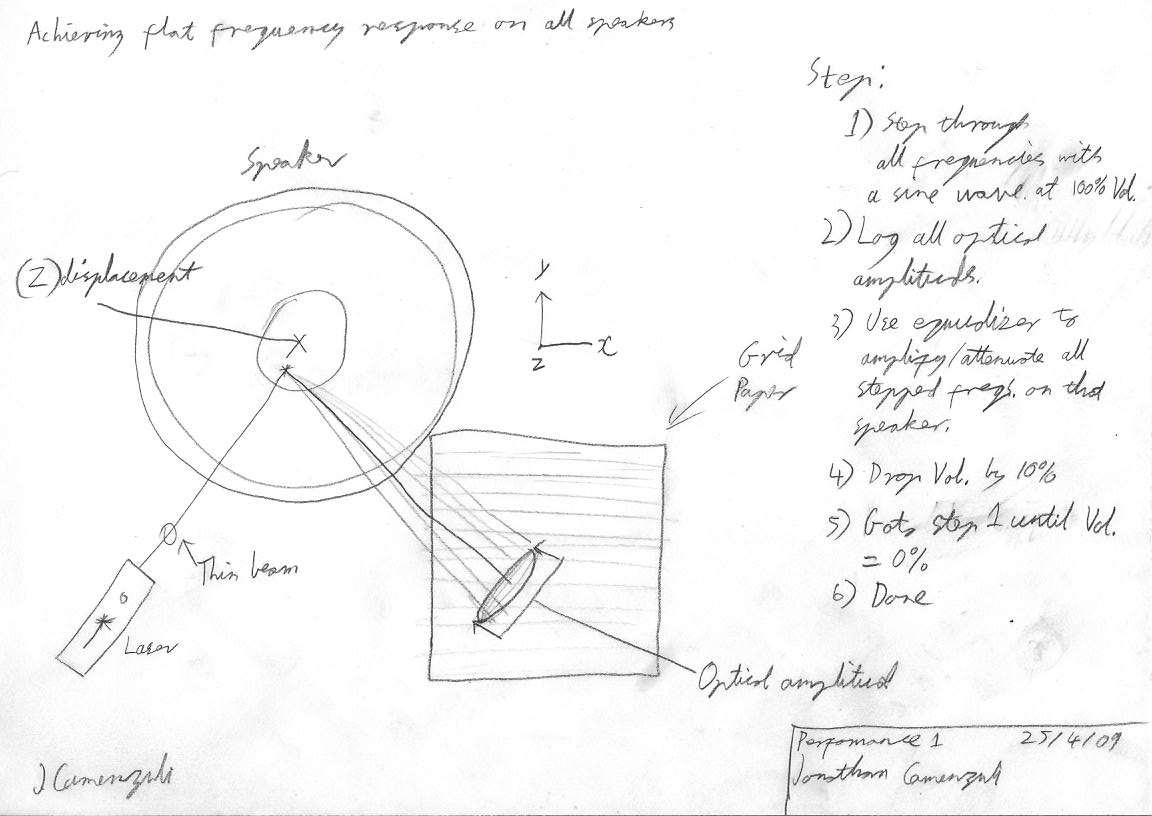 Achieving flat frequency response on all speakers
Speaker
(Z) displacement
Y
x
Z
Grid
Paper
Thin beam
Laser
Optical amplitud
Step:
1) Step through
all frequencies with
a sine wave. at 100% Vol.
2) Log all optical
amplituds.
3) Use equalizer to
amplify/attenuate all
stepped freqs. on that
speaker.
4) Drop Vol. by 10%
5) Goto step 1 until Vol.
= 0%
6) Done
J Camenzuli
Perfomance 1 25/4/09
Jonathan Camenzuli